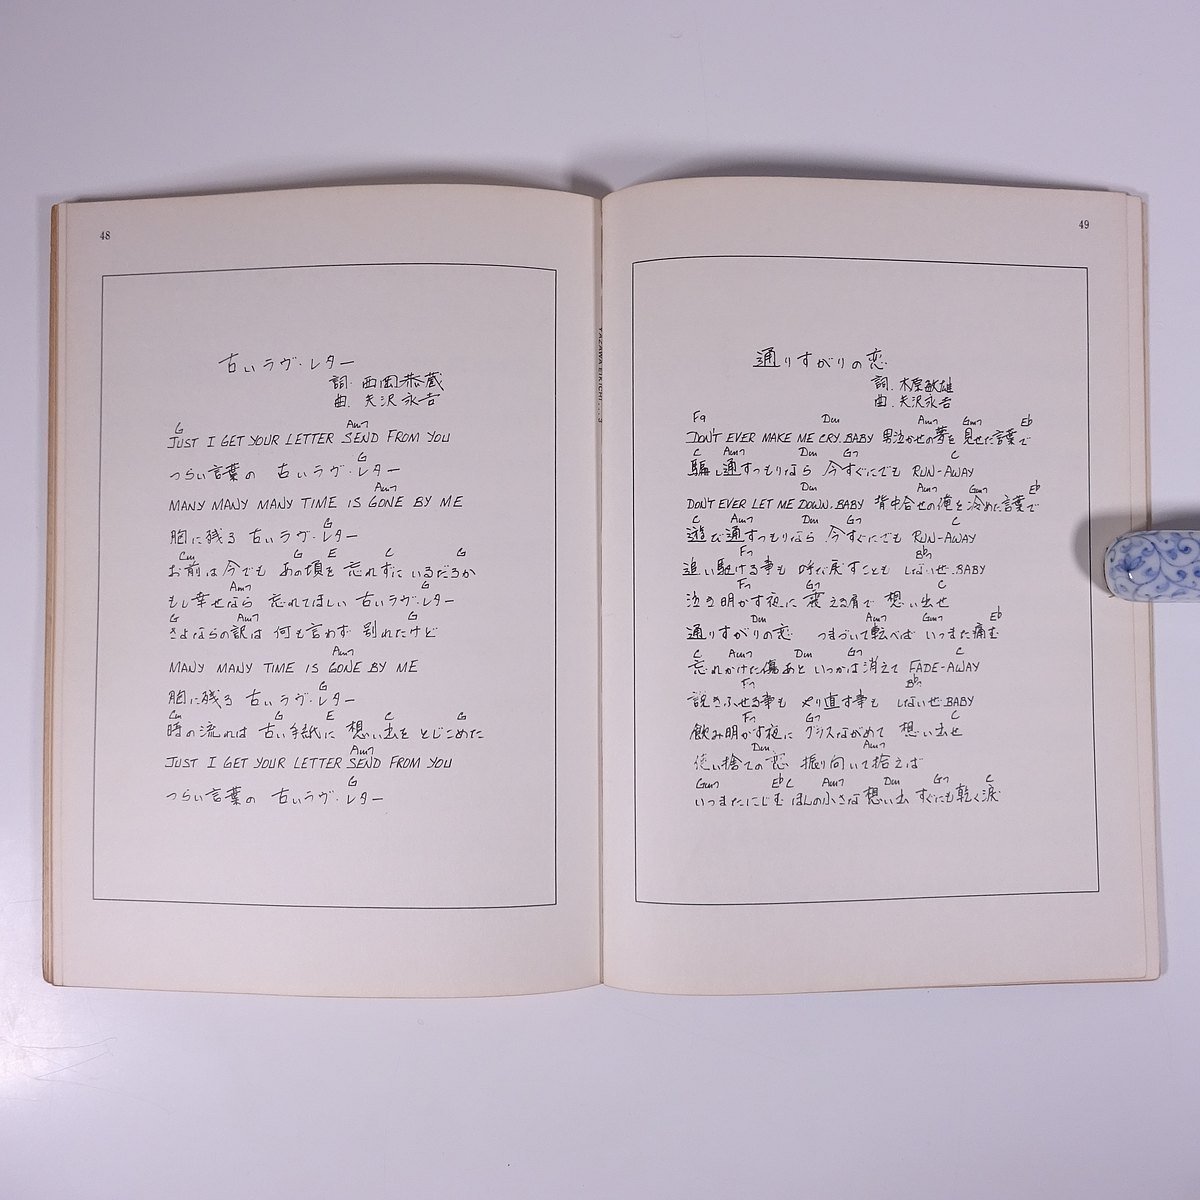 48
古いラヴ・レター
詞. 西岡恭蔵
曲. 矢沢永吉
G Am7
JUST I GET YOUR LETTER SEND FROM YOU
G
つらい言葉の 古いラヴ・レター
Am7
MANY MANY MANY TIME IS GONE BY ME
G
胸に残る 古いラヴ・レター
Cm G E C G
お前は今でも あの頃を 忘れずに いるだろか
Am7 G
もし幸せなら 忘れてほしい 古いラヴ・レター
G Am7 G
さよならの訳は 何も言わず 別れたけど
Am7
MANY MANY TIME IS GONE BY ME
G
胸に残る 古いラヴ・レター
Cm G E C G
時の流れは 古い手紙に 想い出を とじこめた
Am7
JUST I GET YOUR LETTER SEND FROM YOU
G
つらい言葉の 古いラヴ・レター
YAZAWA EIKICHI...3
49
通りすがりの恋
詞. 木原敏雄
曲. 矢沢永吉
F9 Dm Am7 Gm7 E♭
DON'T EVER MAKE ME CRY. BABY 男泣かせの夢を 見せた言葉で
C Am7 Dm G7 C
騙し通すつもりなら 今すぐにでも RUN-AWAY
Dm Am7 Gm7 E♭
DON'T EVER LET ME DOWN. BABY 背中合せの俺を 冷めた言葉で
C Am7 Dm G7 C
遊び通すつもりなら 今すぐにでも RUN-AWAY
F7 B♭7
追い駆ける事も 呼び戻すことも しないぜ. BABY
F7 G7 C
泣き明かす夜に 震える肩で 想い出せ
Dm Am7 Gm7 E♭
通りすがりの恋 つまづいて転べば いつまた痛む
C Am7 Dm G7 C
忘れかけた傷あと いつかは消えて FADE-AWAY
F7 B♭7
説きふせる事も やり直す事も しないぜ. BABY
F7 G7 C
飲み明かす夜に グラスながめて 想い出せ
Dm Am7
使い捨ての恋 振り向いて拾えば
Gm7 E♭ C Am7 Dm G7 C
いつまたにじむ ほんの小さな想い出 すぐにも乾く涙